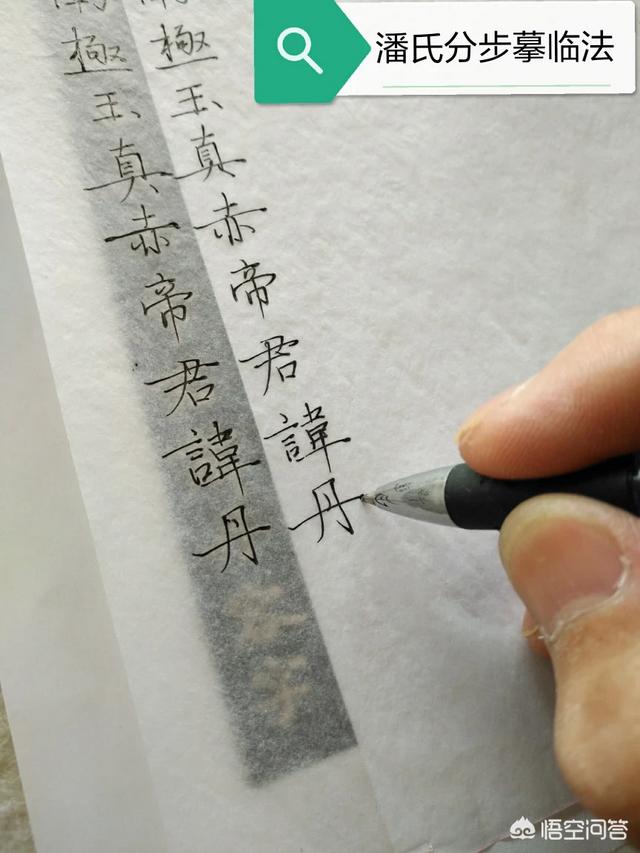 潘氏分步摹临法
極玉真赤帝君諱丹
極玉真赤帝君諱丹
悟空问答